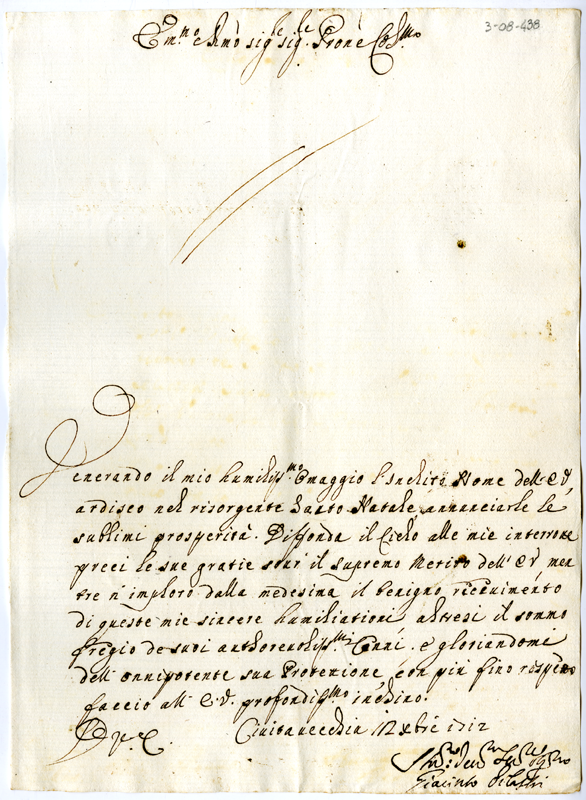 3-08-438
Em.mo e Rmo sig.re sig.re Prone Col.mo
Venerando il mio humiliss.mo Omaggio l'Inclito Nome dell' E V,
ardisco nel risorgente Santo Natale annunciarle le
sublimi prosperità. Diffonda il Cielo alle mie interrotte
preci le sue gratie sour' il supremo Merito dell' E V, men
tre n'imploro dalla medesima il benigno riceuimento
di queste mie sincere humiliationi altresi il sommo
fregio de suoi authoreuoliss.mi Canni. e gloriandomi
dell' onnipotente sua Protezione con piu fino rispetto
faccio all' E.V. profondiss.mo inchino.
D V. E. Ciuitauecchia 12 Xbre 1712
Giacinto